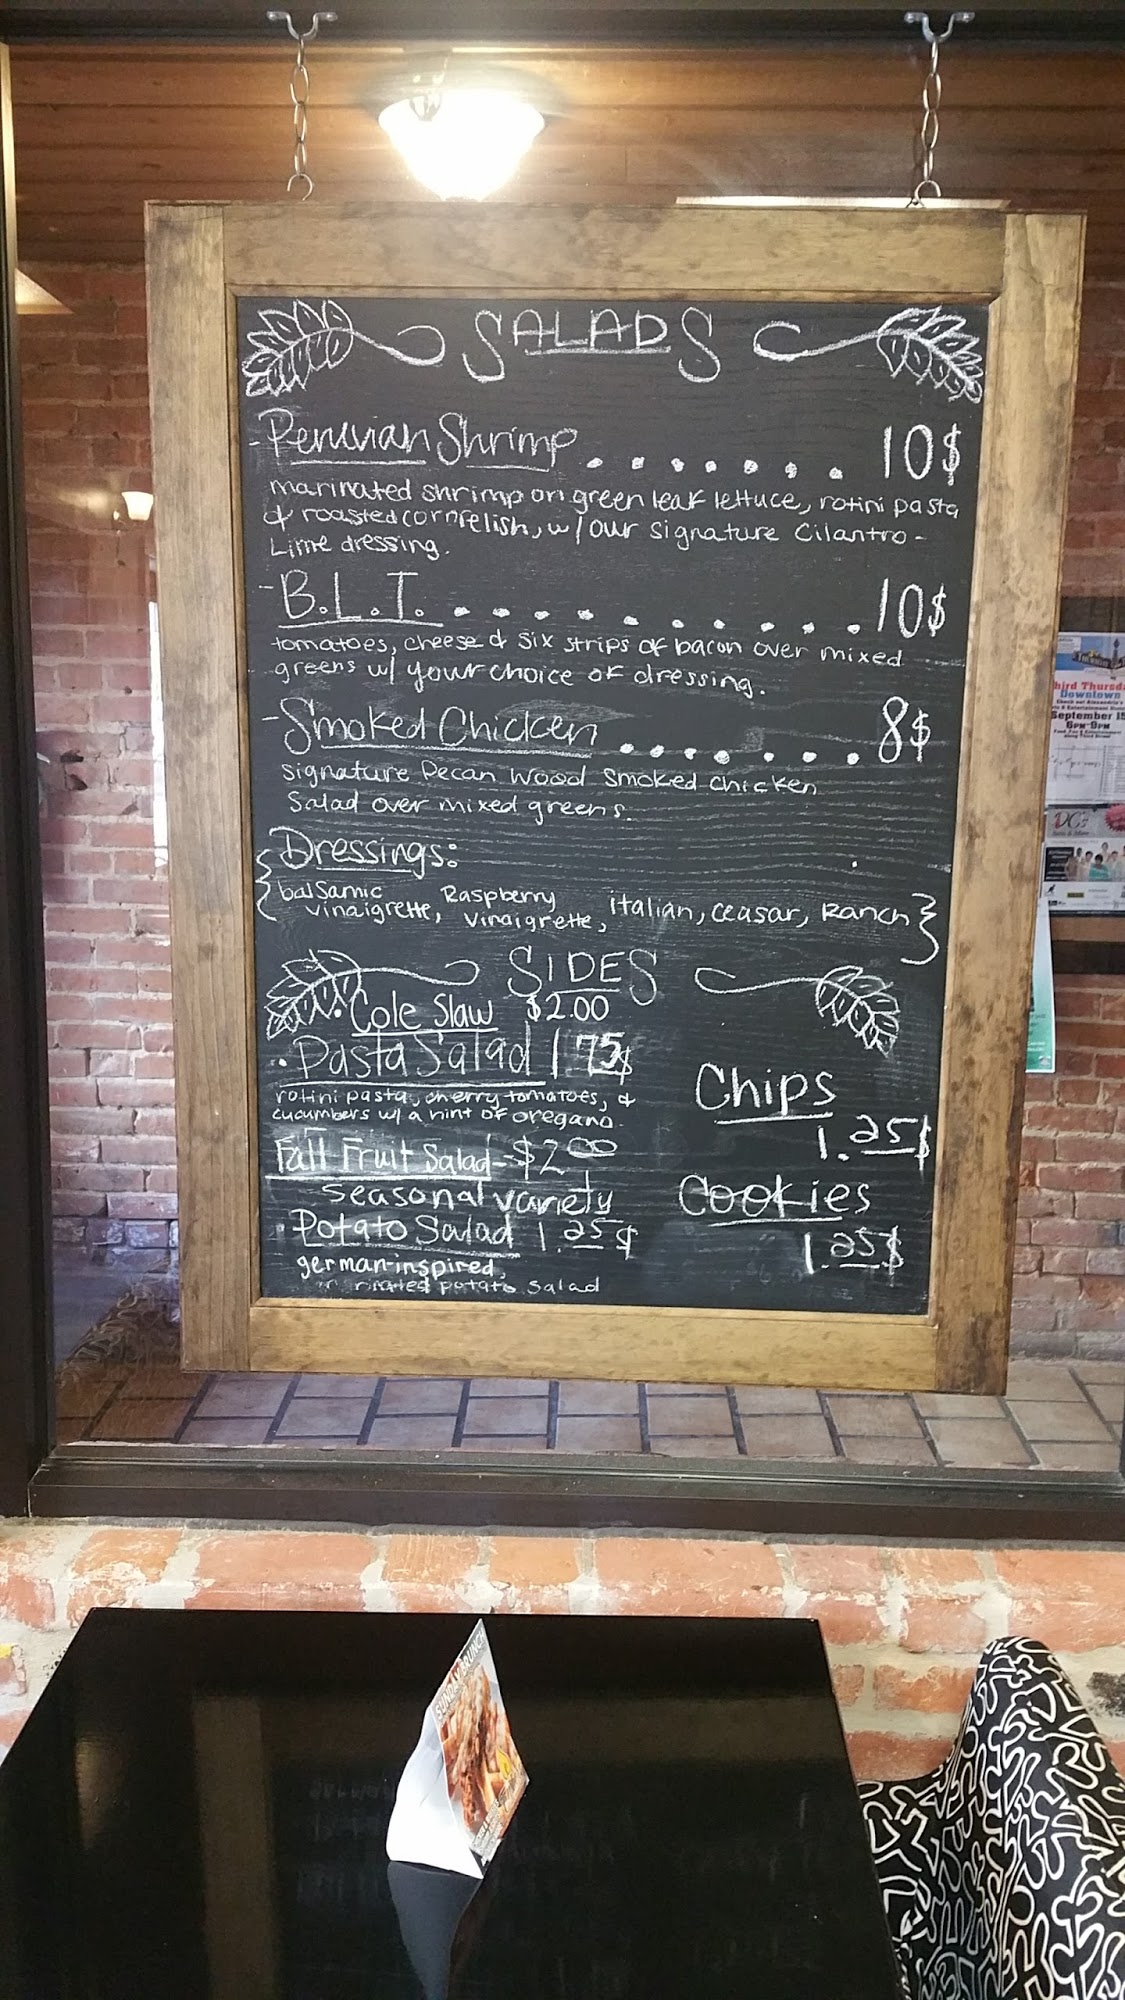 SALADS
- Peruvian Shrimp . . . . . . . 10$
marinated shrimp on green leaf lettuce, rotini pasta
& roasted corn relish, w/our signature Cilantro-
Lime dressing.
- B.L.T. . . . . . . . . . . 10$
tomatoes, cheese & six strips of bacon over mixed
greens w/ your choice of dressing.
- Smoked Chicken . . . . . . . 8$
signature Pecan Wood smoked chicken
salad over mixed greens.
Dressings:
{ balsamic vinaigrette, Raspberry vinaigrette, italian, ceasar, Ranch }
SIDES
• Cole Slaw $2.00
• Pasta Salad 1.75$
rotini pasta, cherry tomatoes, &
cucumbers w/ a hint of oregano.
Fall Fruit Salad - $2.00
seasonal variety
• Potato Salad 1.25$
german-inspired,
potato salad
Chips
1.25$
Cookies
1.25$
Third Thursday
Downtown
September 15
6PM-9PM
DC's